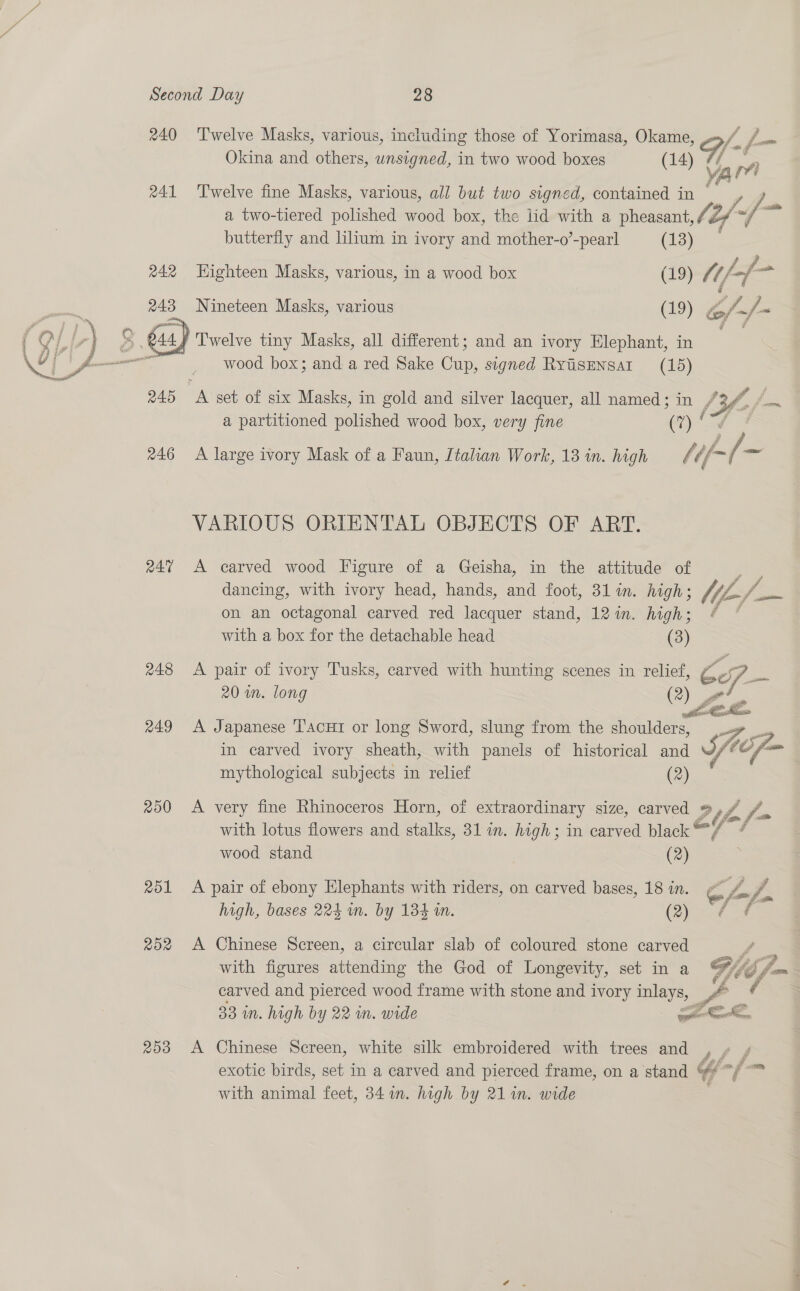 Second Day 28
240 Twelve Masks, various, including those of Yorimasa, Okame,
Okina and others, unsigned, in two wood boxes (14)
241 Twelve fine Masks, various, all but two signed, contained in
a two-tiered polished wood box, the lid with a pheasant,
butterfly and lilium in ivory and mother-o’-pearl (13)
242 Eighteen Masks, various, in a wood box (19)
243 Nineteen Masks, various (19)
244 Twelve tiny Masks, all different; and an ivory Elephant, in
wood box; and a red Sake Cup, signed Ryūsensai (15)
245 A set of six Masks, in gold and silver lacquer, all named; in
a partitioned polished wood box, very fine (7)
246 A large ivory Mask of a Faun, Italian Work, 13 in. high
VARIOUS ORIENTAL OBJECTS OF ART.
247 A carved wood Figure of a Geisha, in the attitude of
dancing, with ivory head, hands, and foot, 31 in. high;
on an octagonal carved red lacquer stand, 12 in. high;
with a box for the detachable head (3)
248 A pair of ivory Tusks, carved with hunting scenes in relief,
20 in. long (2)
249 A Japanese Tachi or long Sword, slung from the shoulders,
in carved ivory sheath, with panels of historical and
mythological subjects in relief (2)
250 A very fine Rhinoceros Horn, of extraordinary size, carved
with lotus flowers and stalks, 31 in. high; in carved black
wood stand (2)
251 A pair of ebony Elephants with riders, on carved bases, 18 in.
high, bases 22½ in. by 13½ in. (2)
252 A Chinese Screen, a circular slab of coloured stone carved
with figures attending the God of Longevity, set in a
carved and pierced wood frame with stone and ivory inlays,
33 in. high by 22 in. wide
253 A Chinese Screen, white silk embroidered with trees and
exotic birds, set in a carved and pierced frame, on a stand
with animal feet, 34 in. high by 21 in. wide